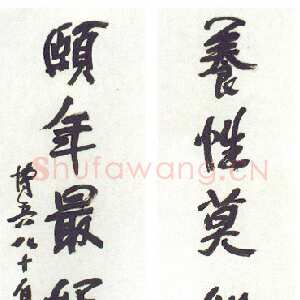 養性莫
頤年最
博吾八十
Shufawang.CN